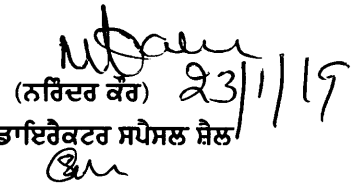 (ਨਰਿੰਦਰ ਕੌਰ) 23/1/19
ਡਾਇਰੈਕਟਰ ਸਪੈਸਲ ਸ਼ੈਲ